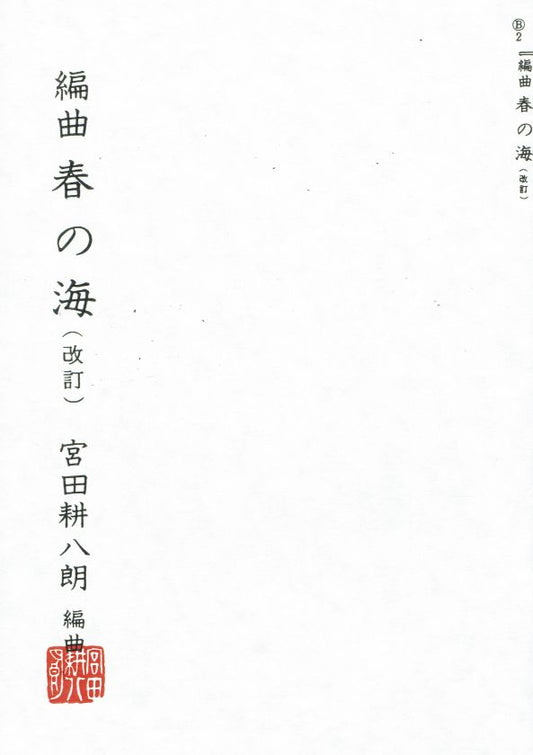 Ⓑ2 編曲 春の海(改訂)
編曲 春の海(改訂) 宮田耕八朗 編曲
宮田
耕八
朗